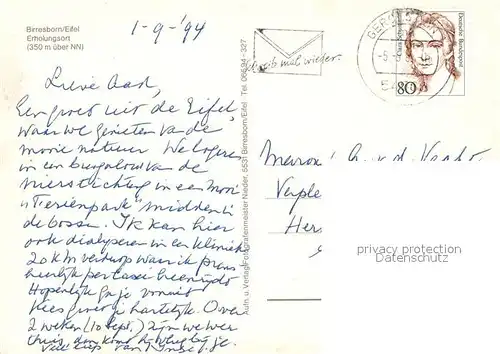 Birresborn/Eifel
Erholungsort
(350 m über NN)
1-9-'94
Lieve Aad,
Een groet uit de Eifel,
waar we genieten van de
mooie natuur. We logeren
in een bungalow van de
Nierstichting in een mooi
"Ferienpark" midden in
de bossen. Ik kan hier
ook dialyseren in een kliniek
20 km verderop waar ik
heerlijk per taxi heen
Hopelijk ga je vooruit
Kees groet je hartelijk. Over
2 weken (10 sept.) zijn we weer
thuis, dan kom ik weer bij je.
Veel liefs van
Auth. u. Verlag Fotografenmeister Nieder, 5531 Birresborn/Eifel Tel. 06594-327
Schreib mal wieder.
GEROLSTEIN
54
Deutsche Bundespost
Clara Schumann
80
Mevrouw A. v.d.
Verple
Her
privacy protection
Datenschutz